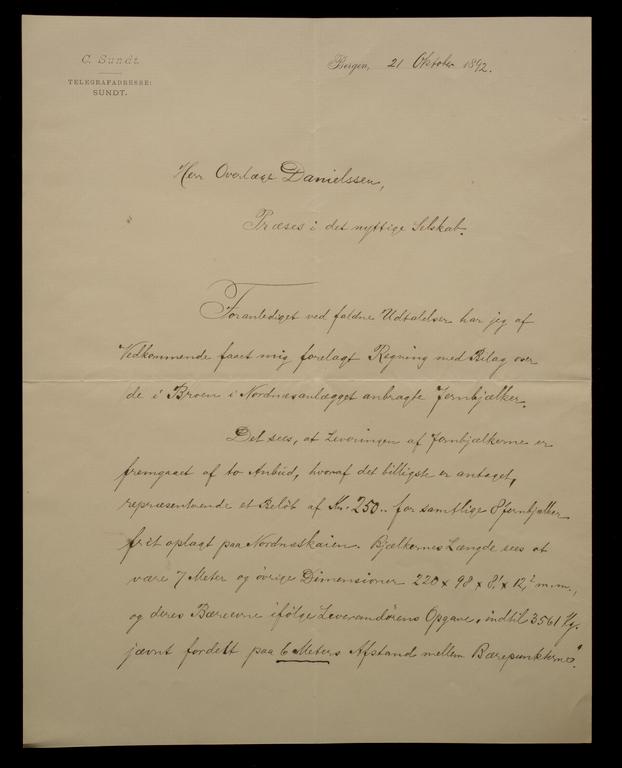 C. Sundt.
TELEGRAFADRESSE:
SUNDT.
Bergen, 21 Oktober 1892.
Herr Overlæge Danielssen,
Præses i det nyttige Selskab.
Foranlediget ved faldne Udtalelser har jeg af
Vedkommende faaet mig forelagt Regning med Bilag over
de i Broen i Nordnæsanlægget anbragte Jernbjælker.
Det sees, at Leveringen af Jernbjælkerne er
fremgaaet af to Anbud, hvoraf det billigste er antaget,
repræsenterende et Beløb af Kr. 250.. for samtlige 8 Jernbjælker
frit oplagt paa Nordnæskaien. Bjælkernes Længde sees at
være 7 Meter og øvrige Dimensioner 220 x 98 x 8,1 x 12,2 m.m.,
og deres Bæreevne ifølge Leverandørens Opgave, indtil 3561 Kg.
jævnt fordelt paa 6 Meters Afstand mellem Bærepunkterne".